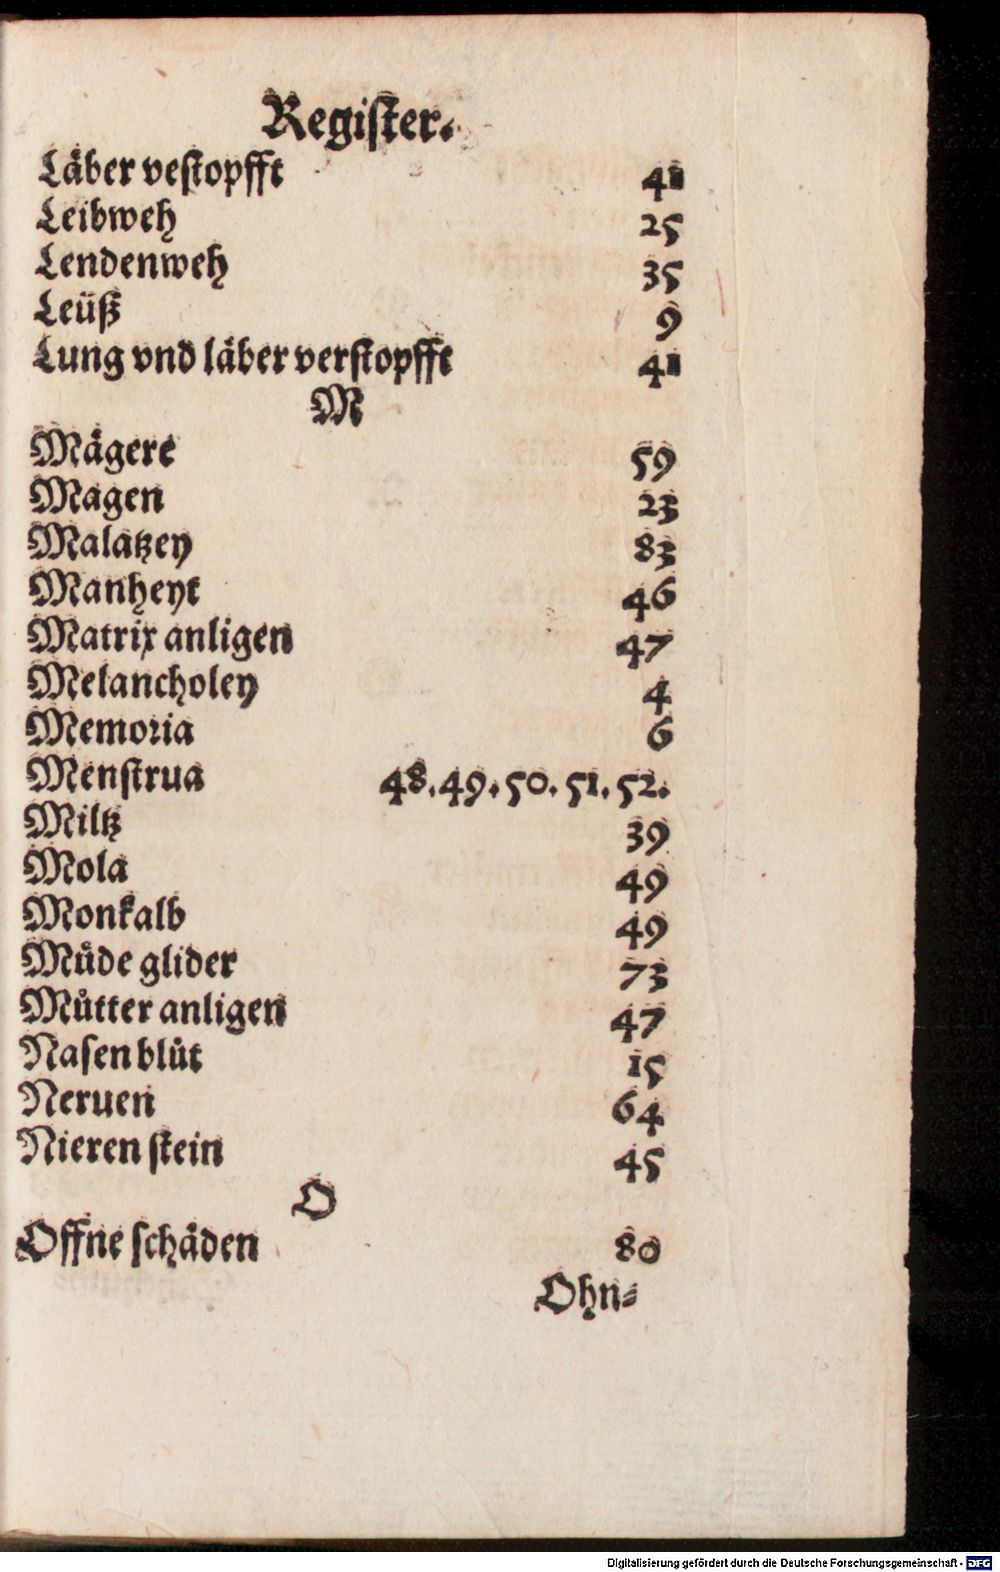 Register.
Läber vestopfft 41
Leibweh 25
Lendenweh 35
Leüß 9
Lung vnd läber verstopfft 41
M
Mägere 59
Magen 23
Malatzey 83
Manheyt 46
Matrix anligen 47
Melancholey 4
Memoria 6
Menstrua 48.49.50.51.52.
Miltz 39
Mola 49
Monkalb 49
Müde glider 73
Můtter anligen 47
Nasen blůt 15
Neruen 64
Nieren stein 45
O
Offne schäden 80
Ohn⸗
Digitalisierung gefördert durch die Deutsche Forschungsgemeinschaft - DFG